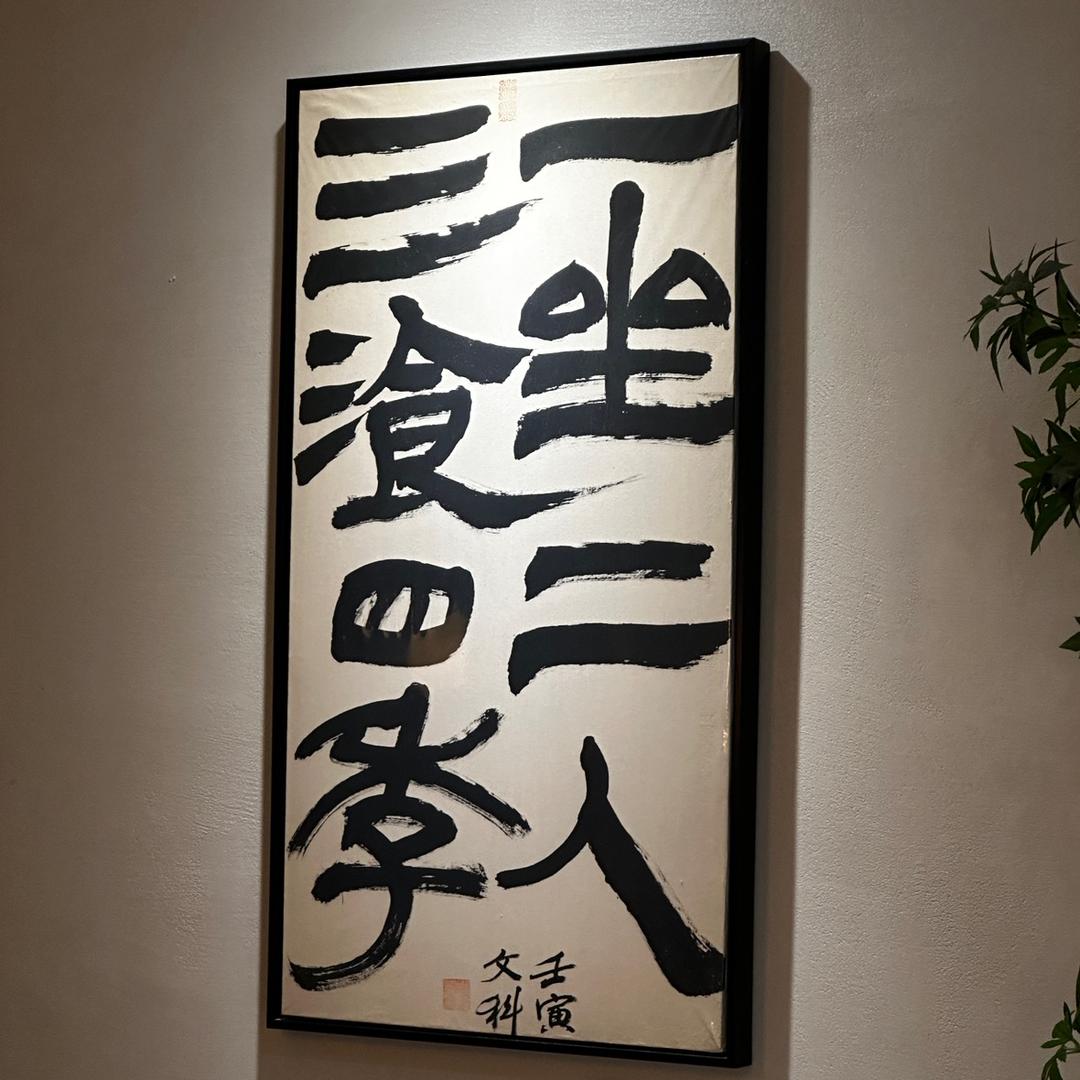 一坐二人
三湌四季
壬寅
文科